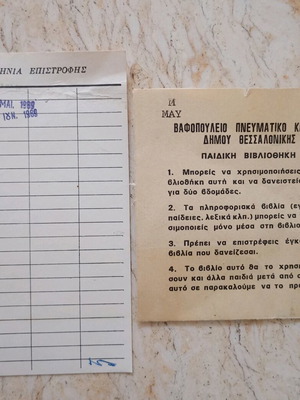 ΗΝΙΑ ΕΠΙΣΤΡΟΦΗΣ
ΜΑΪ. 1988
ΙΟΥΝ. 1988
Μ
ΜΑΥ
ΒΑΦΟΠΟΥΛΕΙΟ ΠΝΕΥΜΑΤΙΚΟ ΚΕ
ΔΗΜΟΥ ΘΕΣΣΑΛΟΝΙΚΗΣ
ΠΑΙΔΙΚΗ ΒΙΒΛΙΟΘΗΚΗ
1. Μπορείς να χρησιμοποιήσεις
βλιοθήκη αυτή και να δανειστεί
για δύο βδομάδες.
2. Τα πληροφοριακά βιβλία (εγ
παίδειες, λεξικά κλπ.) μπορείς να
σιμοποιείς μόνο μέσα στη βιβλιο
3. Πρέπει να επιστρέφεις έγκα
βιβλία που δανείζεσαι.
4. Το βιβλίο αυτό θα το χρησι
σουν και άλλα παιδιά μετά από σ
αυτό σε παρακαλούμε να το πρ